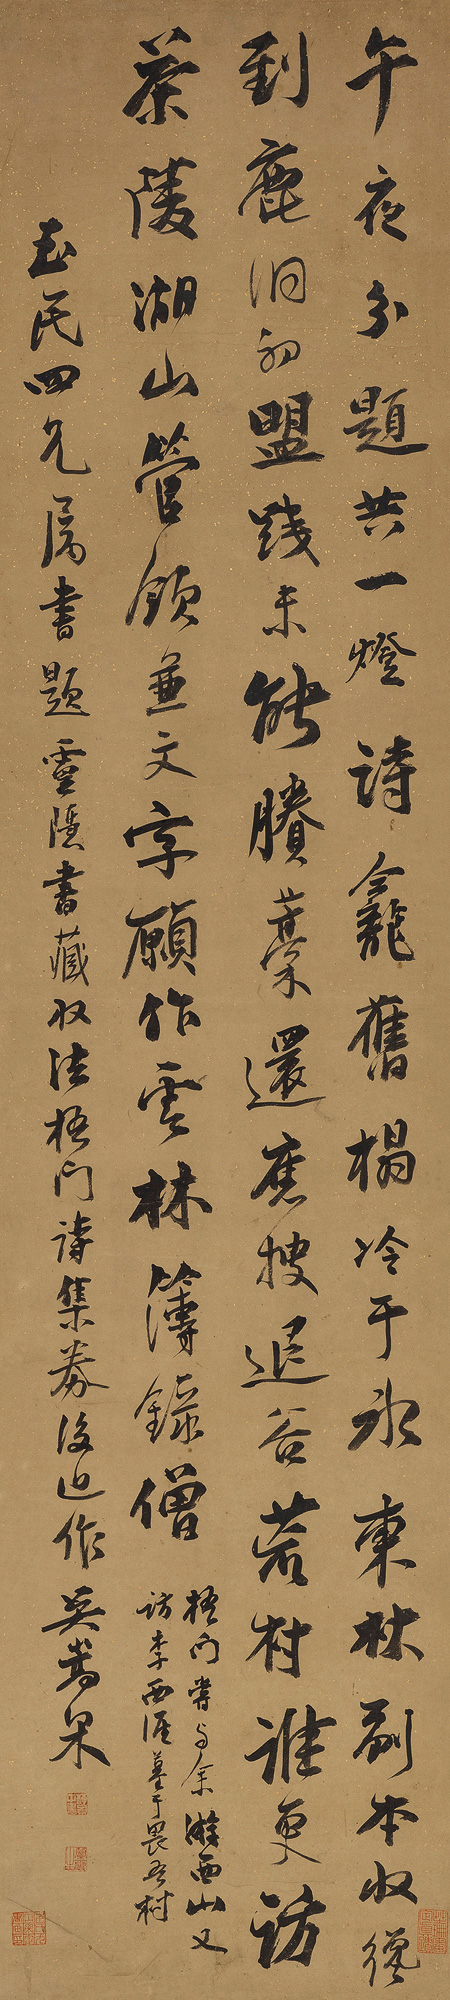 午夜分題共一燈詩龕舊榻冷于冰東林副本收纔
到鹿洞初盟踐未能賸藁還應搜退谷荒村誰更訪
茶陵湖山管領兼文字願作雲林簿錄僧
梧門嘗與余游西山又
訪李西涯墓于畏吾村
四兄屬書題靈隱書藏收法梧門詩集券後近作吳嵩梁